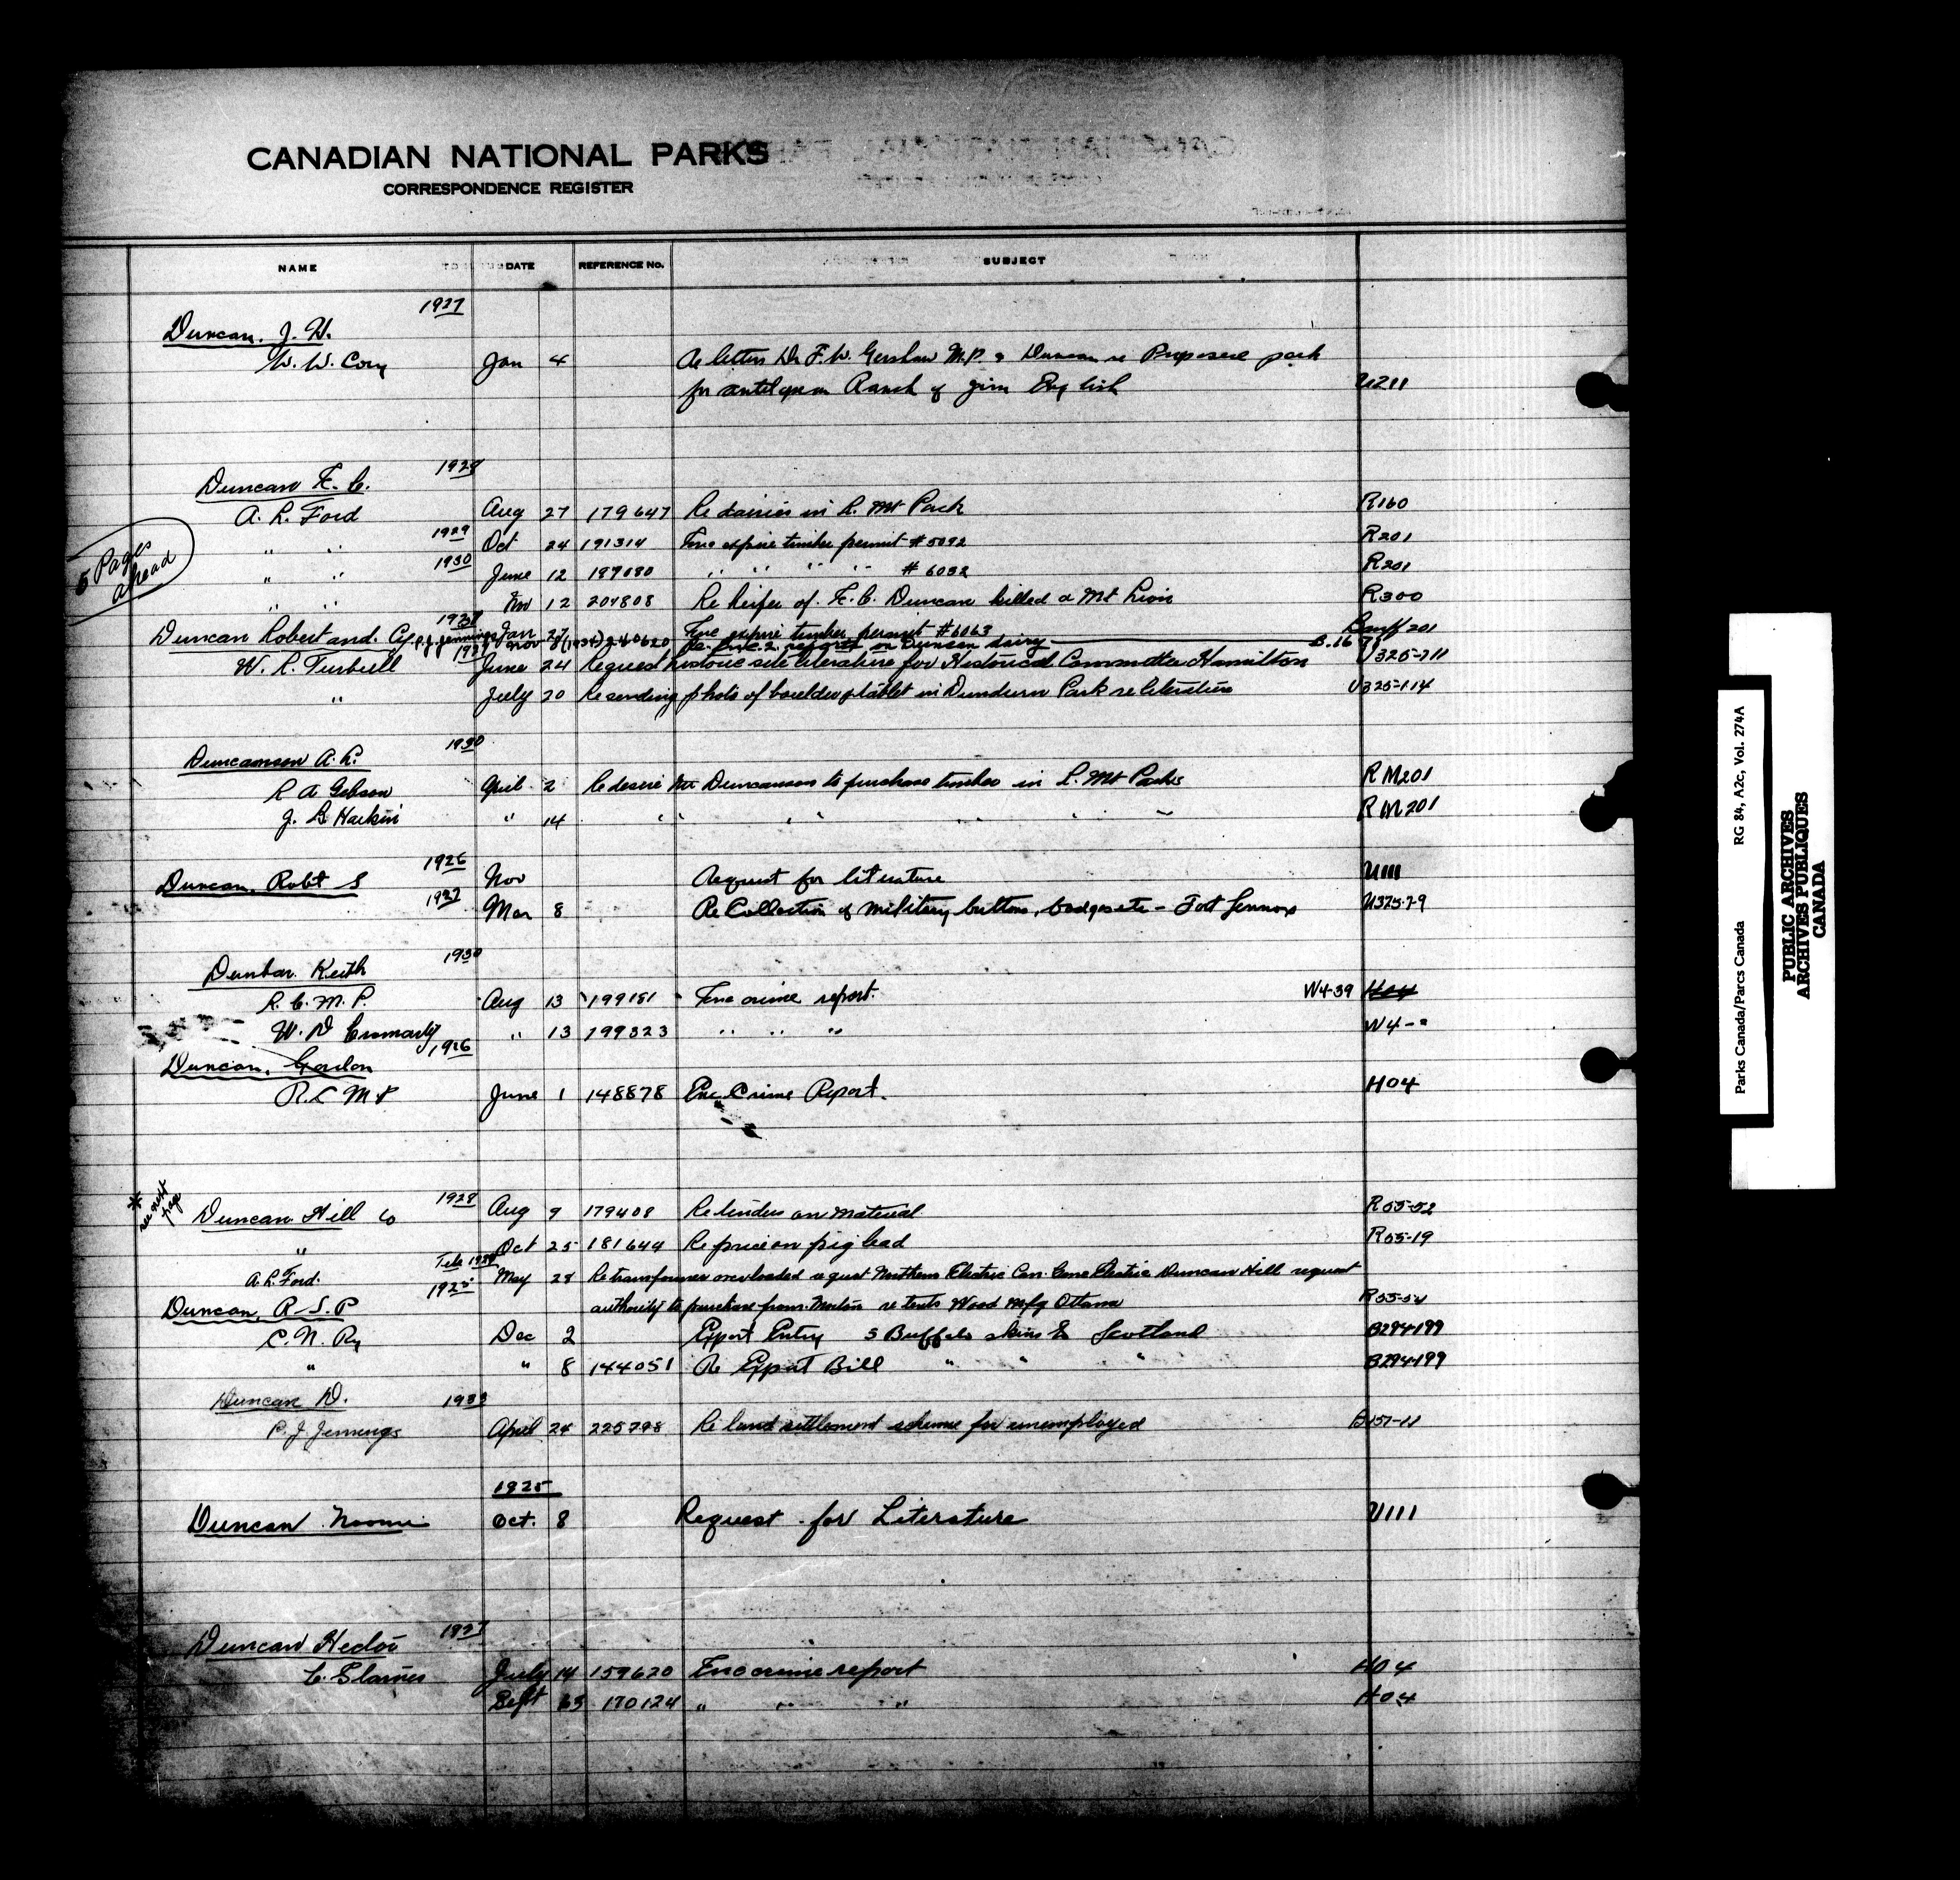 CANADIAN NATIONAL PARKS
CORRESPONDENCE REGISTER
NAME DATE REFERENCE No. SUBJECT
1927
Duncan, J. H.
W. W. Cory Jan 4 Re letters Dr F. W. Gershaw M.P. & Duncan re Proposed park
for antelope on Ranch of Jim English U211
1928
Duncan F. C.
A. L. Ford Aug 27 179647 Re dairies in R. Mt Park R160
" " 1929 Oct 24 191314 Enc expire timber permit #5092 R201
5 Pages ahead
" " 1930 June 12 197080 " " " " #6032 R201
" " Nov 12 204808 Re heifer of F. C. Duncan killed a Mt Lion R300
Jan 27 Enc expire timber permit #6063 Banff 201
P. J. Jennings Nov 8 (1934) 240620 Re reports on Duncan dairy B.16
Duncan Robert and Co
W. R. Turbull June 24 Request historic site literature for Historical Committee Hamilton U325-211
" July 20 Re sending photo of boulder & tablet in Dundurn Park re literature U325-114
1930
Duncanson A. R.
R A Gibson April 2 Re desire Mr Duncanson to purchase timber in R. Mt Parks RM201
J. B Harkin " 14 " " " " " RM201
1926
Duncan, Robt S Nov Request for literature U111
1927 Mar 8 Re Collection of military buttons, badges etc - Fort Lennox U325-7-9
1930
Dunbar Keith
R. C. M. P. Aug 13 199151 Enc crime report. W4-39 H04
W. D Cromarty " 13 199323 " " " W4-"
1926
Duncan, Gordon
R. C M P June 1 148878 Enc Crime Report. H04
* see next page
1928
Duncan Hill Co Aug 9 179408 Re tenders on material R55-52
" Oct 25 181644 Re price on pig lead R55-19
A. L. Ford. May 28 Re transformer overloaded request Northern Electric Can. Gene Electric Duncan Hill request
authority to purchase from Morton re tents Wood Mfg Ottawa
1925
Duncan, R. S. P
C. N. Ry Dec 2 Export Entry 5 Buffalo skins to Scotland B294-199
" " 8 144051 Re Export Bill " " " B294-199
Duncan D. 1933
P. J. Jennings April 24 225798 Re land settlement scheme for unemployed B157-11
1925
Duncan Noomi Oct. 8 Request for Literature U111
1927
Duncan Hector
C. Starnes July 14 159620 Enc crime report H04
Sept 170124 " " " H04
Parks Canada/Parcs Canada RG 84, A2c, Vol. 274A
PUBLIC ARCHIVES
ARCHIVES PUBLIQUES
CANADA